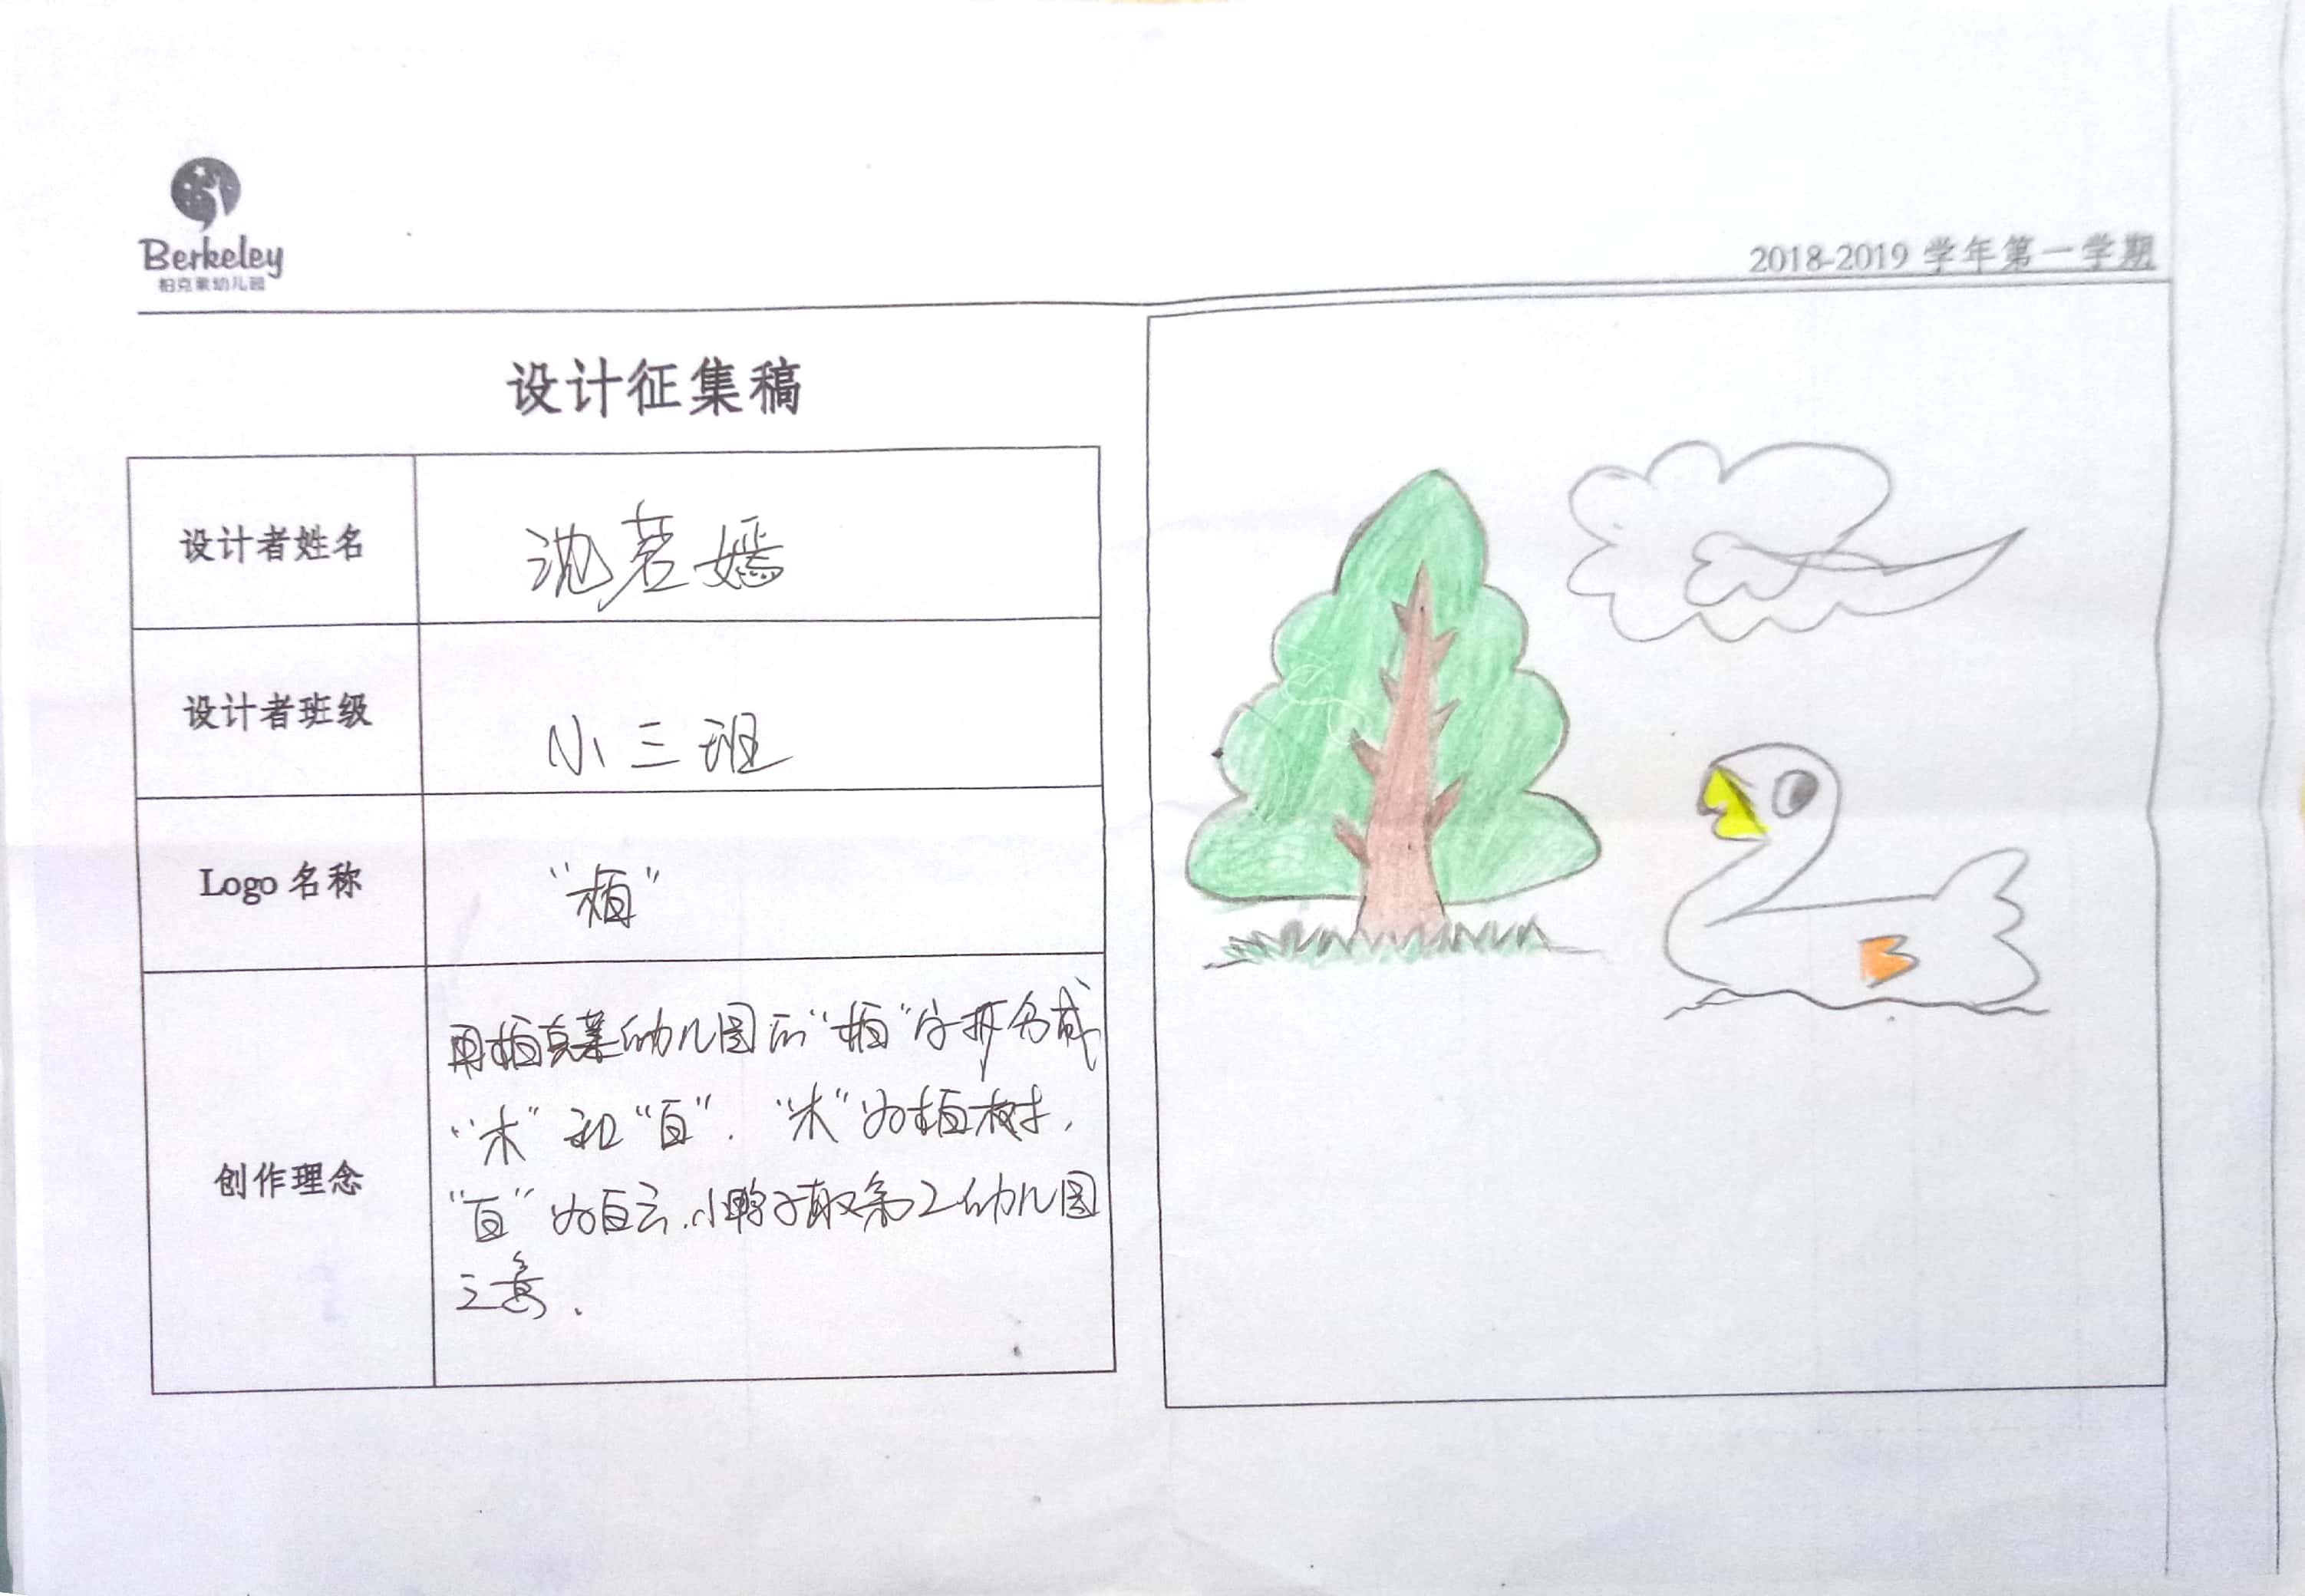 Berkeley
柏克莱幼儿园
2018-2019 学年第一学期
设计征集稿
设计者姓名
沈茗嫣
设计者班级
小三班
Logo 名称
“柏”
创作理念
用柏克莱幼儿园的“柏”字拆分成
“木”和“白”.“木”为柏树,
“白”为白云.小鸭子取第2幼儿园
之意.